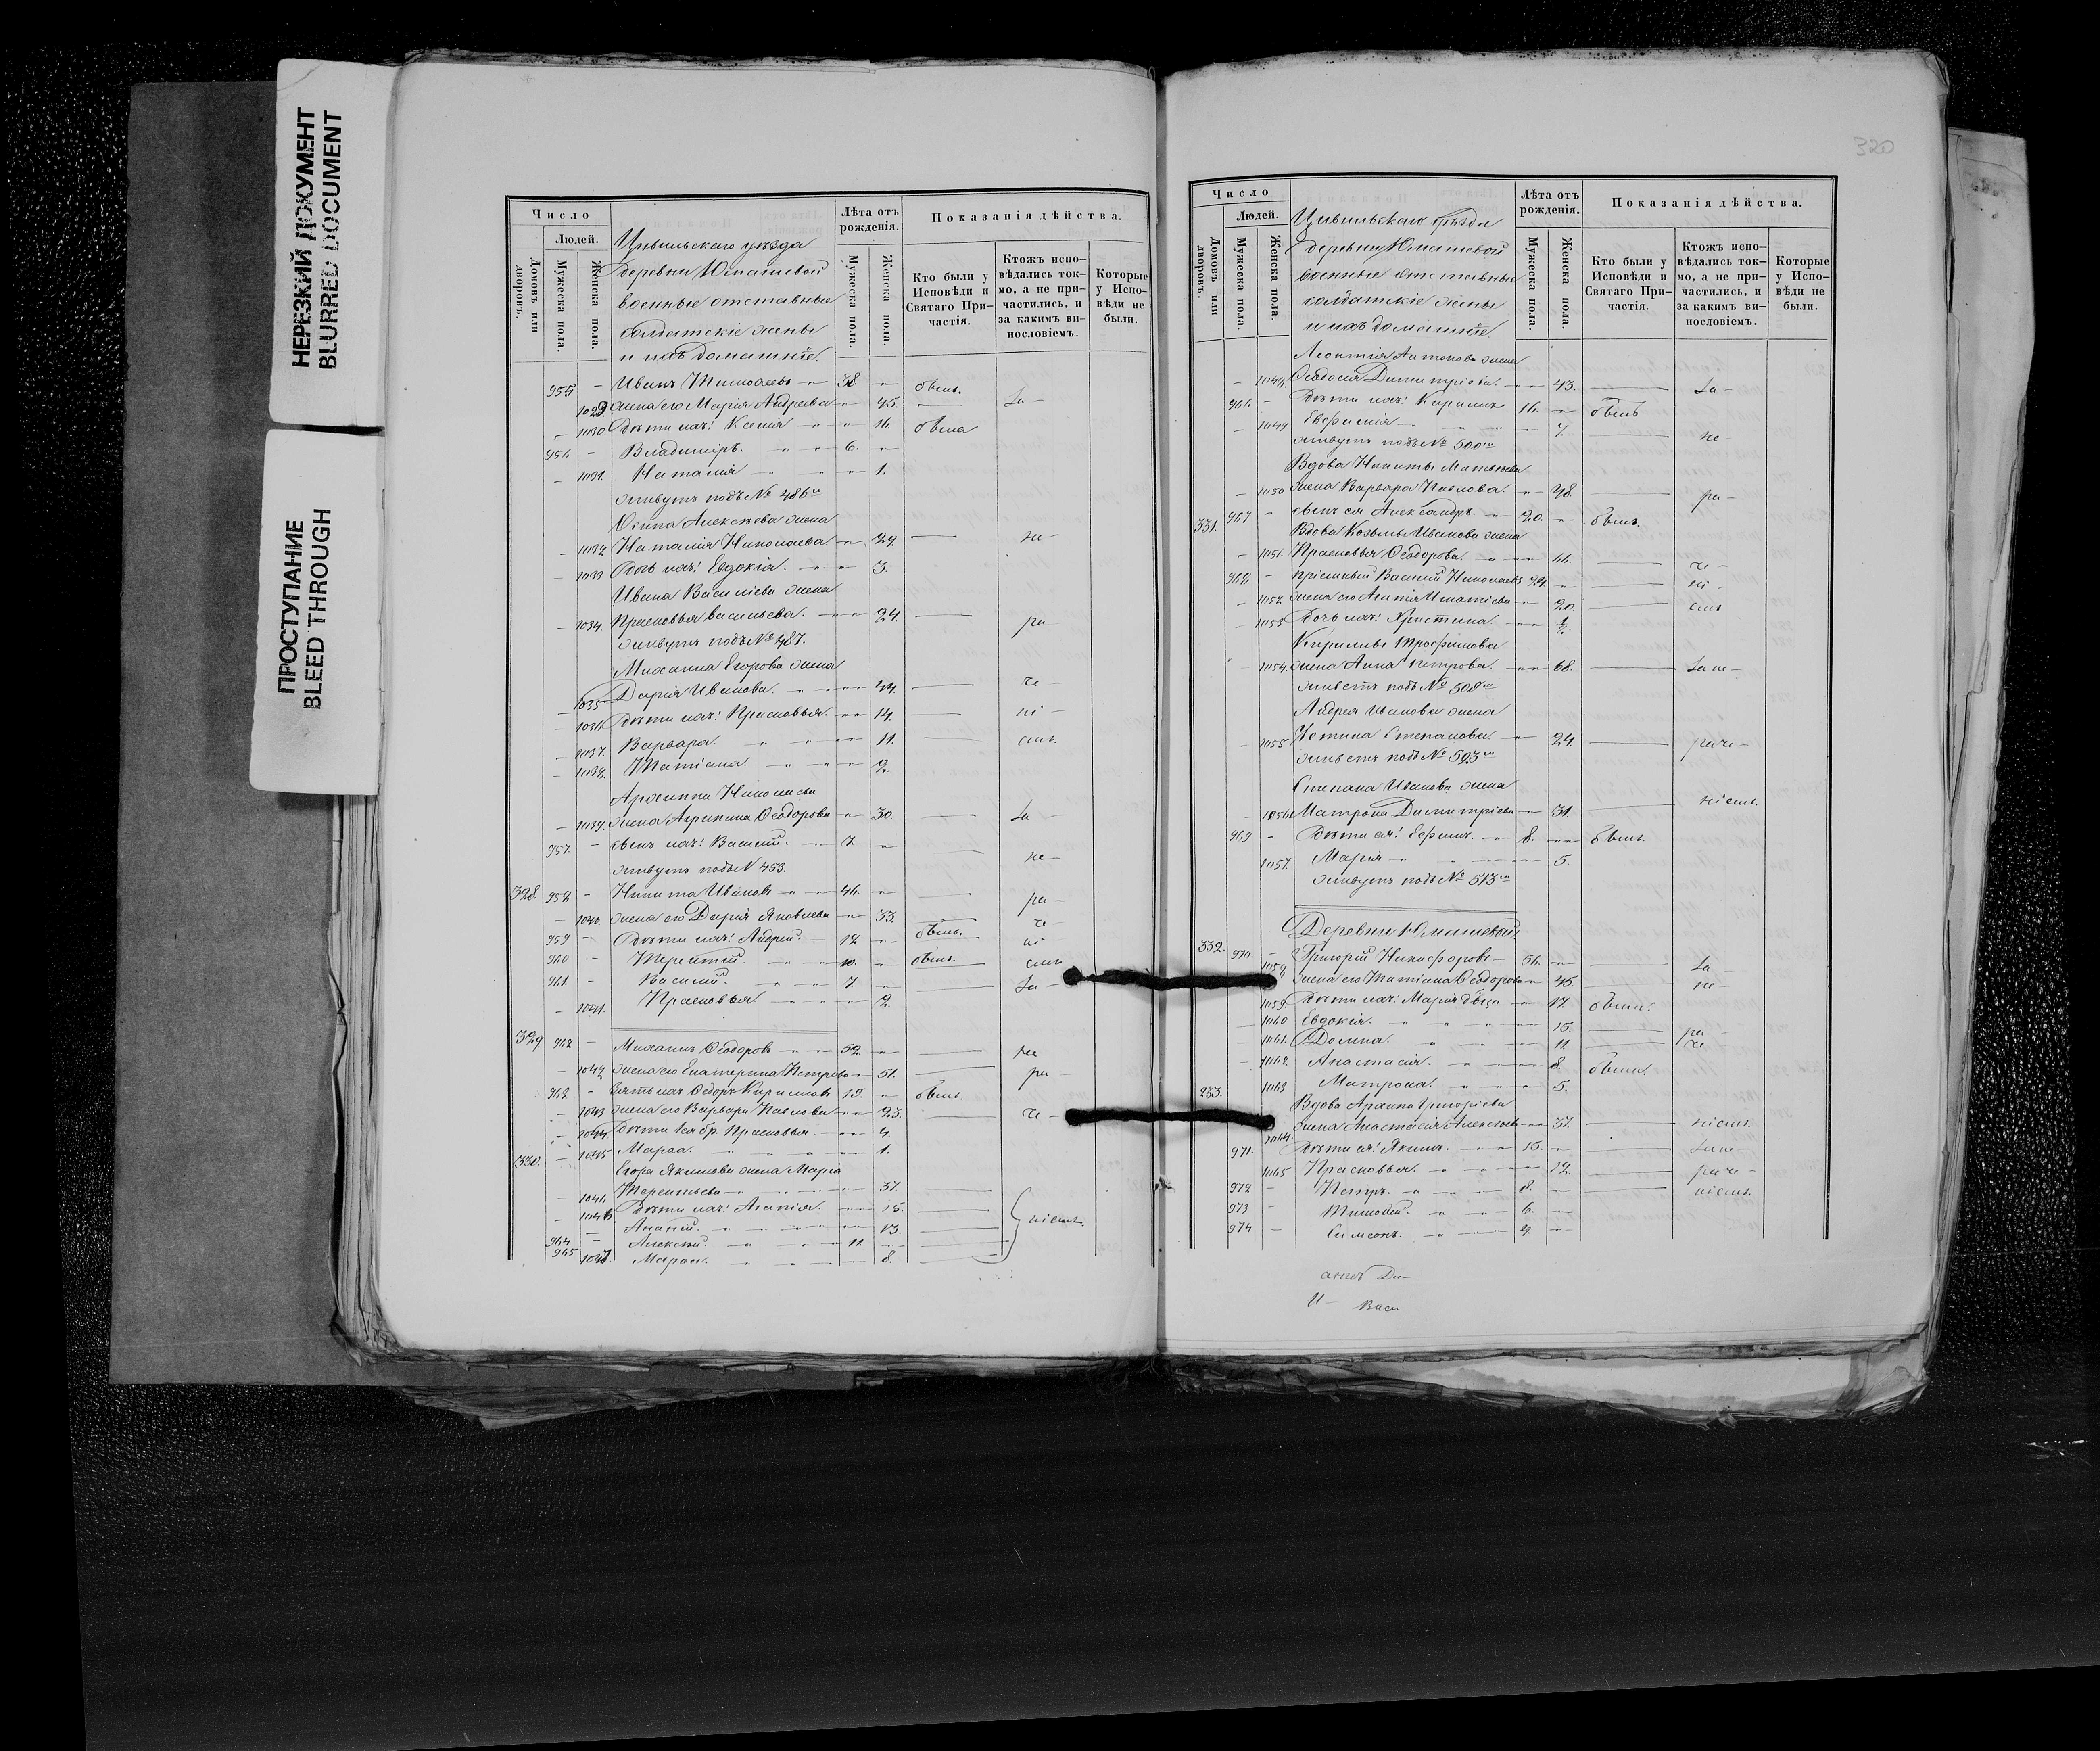 НЕРЕЗКИЙ ДОКУМЕНТ
BLURRED DOCUMENT
ПРОСТУПАНИЕ
BLEED THROUGH
Число
Людей.
Домовъ или дворовъ.
Мужеска пола.
Женска пола.
Цивильскаго уѣзда
деревни Юмашевой
военные отставные
солдатскіе жены
и ихъ домашніе.
Лѣта отъ рожденія.
Мужеска пола.
Женска пола.
Показанія дѣйства.
Кто были у Исповѣди и Святаго Причастія.
Ктожъ исповѣдались токмо, а не причастились, и за какимъ винословіемъ.
Которые у Исповѣди не были.
955 - Иванъ Тимоѳеевъ 38 - бѣша.
1029. жена его Марія Андреева 45. За-
- 1030. Дѣти ихъ: Ксенія 16 бѣша
956. - Владиміръ. 6. -
- 1031. Наталія 1.
живутъ подъ № 486
Осипа Алексѣева жена
- 1032 Наталія Николаева. 29. не-
- 1033 Дочь ихъ: Евдокія. 3.
Ивана Васильева жена
- 1034. Прасковья Васильева. 24. ра-
живутъ подъ № 487.
Михаила Егорова жена
- 1035 Дарія Иванова. 44. че-
- 1036. Дѣти ихъ: Прасковья. 14. ні-
- 1037. Варвара. 11. емъ.
- 1038. Татіана. 2.
Архиппа Николаева
- 1039. жена Агрипина Ѳеодорова 30. За-
957. - сынъ ихъ: Василій. 7. - не-
живутъ подъ № 453.
328. 958 - Никита Ивановъ 46. - ра-
- 1040. жена его Дарія Яковлева 33. че
959 - Дѣти ихъ: Андрей. 12 - бѣша. ні
960 - Терентій. 10. - бѣша. емъ
961. - Василій. 7. - За-
- 1041. Прасковья 2.
329. 962 - Михаилъ Ѳеодоровъ 52. - не
- 1042 жена его Екатерина Петрова 51. ра-
963. - Зять ихъ Ѳедоръ Кириловъ 19. - бѣша.
- 1043 жена его Варвара Павлова 23. че-
- 1044 Прасковья. 4.
- 1045 Марѳа. 1.
330. Егора Якимова жена Марѳа
- 1046. Терентьева 37.
- 1046 Дѣти ихъ: Агапія. 15.
- Ананій. 13. ніемъ.
964 - Алексѣй. 11. -
965 1047. Марѳа. 8.
320
Число
Людей.
Домовъ или дворовъ.
Мужеска пола.
Женска пола.
Цивильскаго уѣзда
деревни Юмашевой
военные отставные
солдатскіе жены
и ихъ домашніе.
Лѣта отъ рожденія.
Мужеска пола.
Женска пола.
Показанія дѣйства.
Кто были у Исповѣди и Святаго Причастія.
Ктожъ исповѣдались токмо, а не причастились, и за какимъ винословіемъ.
Которые у Исповѣди не были.
Леонтія Антонова жена
- 1048. Ѳедосія Димитріева. 43. За-
966. - Дѣти ихъ: Кирилъ 16. - бѣша
- 1049 Евфимія 7. не-
живутъ подъ № 500
Вдова Никиты Матвѣева
- 1050 жена Варвара Павлова. 48. ра-
331. 967 - сынъ ея Александръ. 20. - бѣша.
Вдова Козьмы Иванова жена
- 1051. Прасковья Ѳеодорова. 66. че-
968 - пріемный Василій Николаевъ 24 - ні-
- 1052 жена его Агапія Игнатіева 20. емъ
- 1053 Дочь ихъ: Христина. ½.
Кирилы Трофимова
- 1054. жена Анна Петрова. 68. Зане-
живетъ подъ № 508
Андрея Иванова жена
- 1055 Устина Степанова. 24. раче-
живетъ подъ № 503
Степана Иванова жена
- 1056 Матрона Димитріева 31. ніемъ.
969 - Дѣти ея: Ефимъ. 8. бѣша.
1057. Марія 5.
живутъ подъ № 513
Деревни Юмашевой
332. 970. - Григорій Никифоровъ 56. - За
1058. жена его Татіана Ѳеодорова 45. не-
1059. Дѣти ихъ: Марія дѣвца 17. бѣша.
- 1060 Евдокія. 15. ра-
- 1061. Домна. 11 че
- 1062 Анастасія. 8. бѣша.
333. - 1063 Матрона. 5.
Вдова Архипа Григорьева
- 1064. жена Анастасія Алексѣева 37. ніемъ.
971. Дѣти ея: Якимъ. 15. - Зане
1065 Прасковья. 12. раче-
972 - Петръ. 8. ніемъ.
973 - Тимоѳей. 6.
974 - Симеонъ. 2.
И- Васи